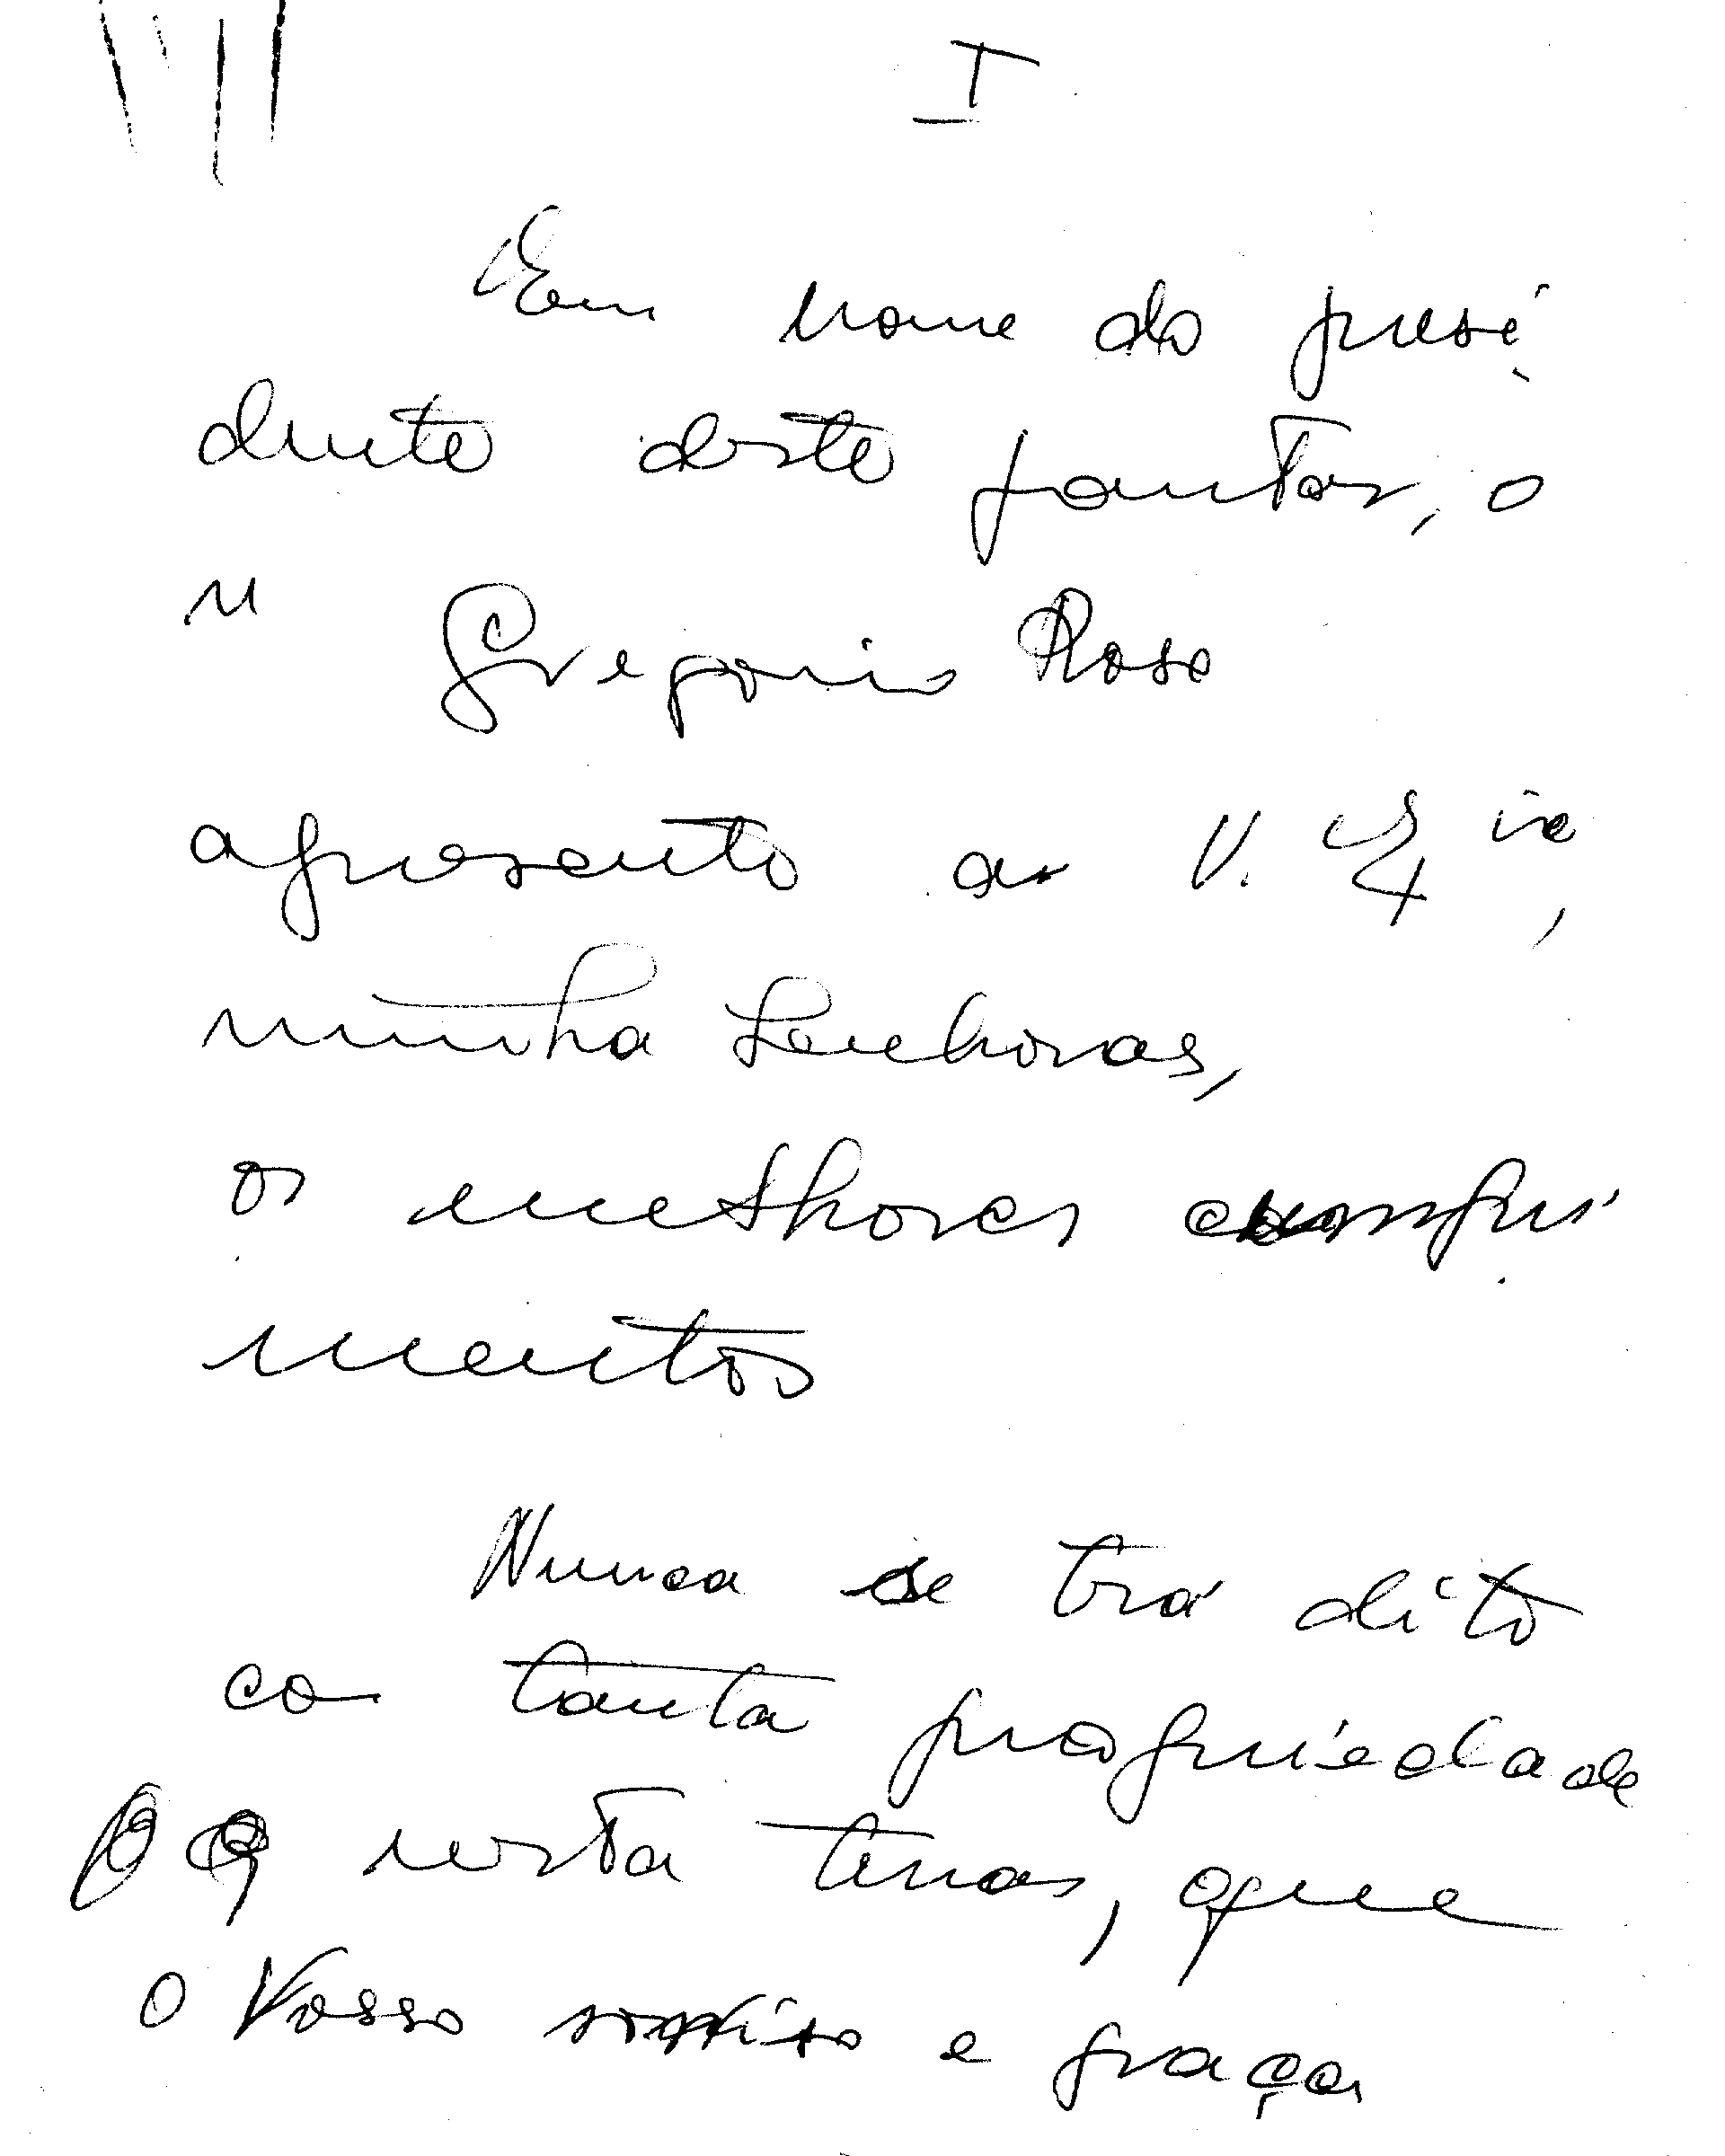 I
Em nome do presi
dente deste jantar, o
sr Gregorio Rosa
apresento as V. Ex cia,
minha Senhoras,
os melhores cumpri
mentos
Nunca se trá dito
co tanta propriedade
nesta terras, que
o Vosso sorriso e graça